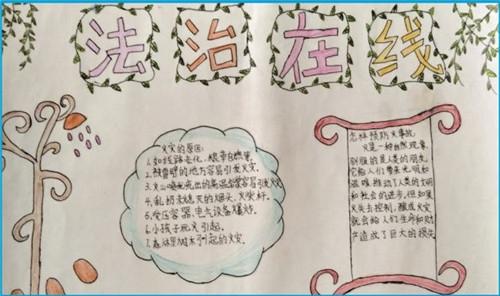 法治在线
火灾的原因:
1.如线路老化,煤等自燃着
2.被雷劈的地方容易引发火灾.
3.火山喷发流出的高温岩浆容易引发火灾
4.乱扔未熄灭的烟头、火柴杆.
5.受压容器、电气设备爆炸.
6.小孩子玩火引起.
7.森林里树木引起的火灾
怎样预防火事故
火是一种自然现象,
驯服的是人类的朋友,
它给人们带来光明和
温暖推动了人类的文明
和社会的进步,但如果
火失去控制,酿成火灾
就会给人们生命和财
产造成了巨大的损失